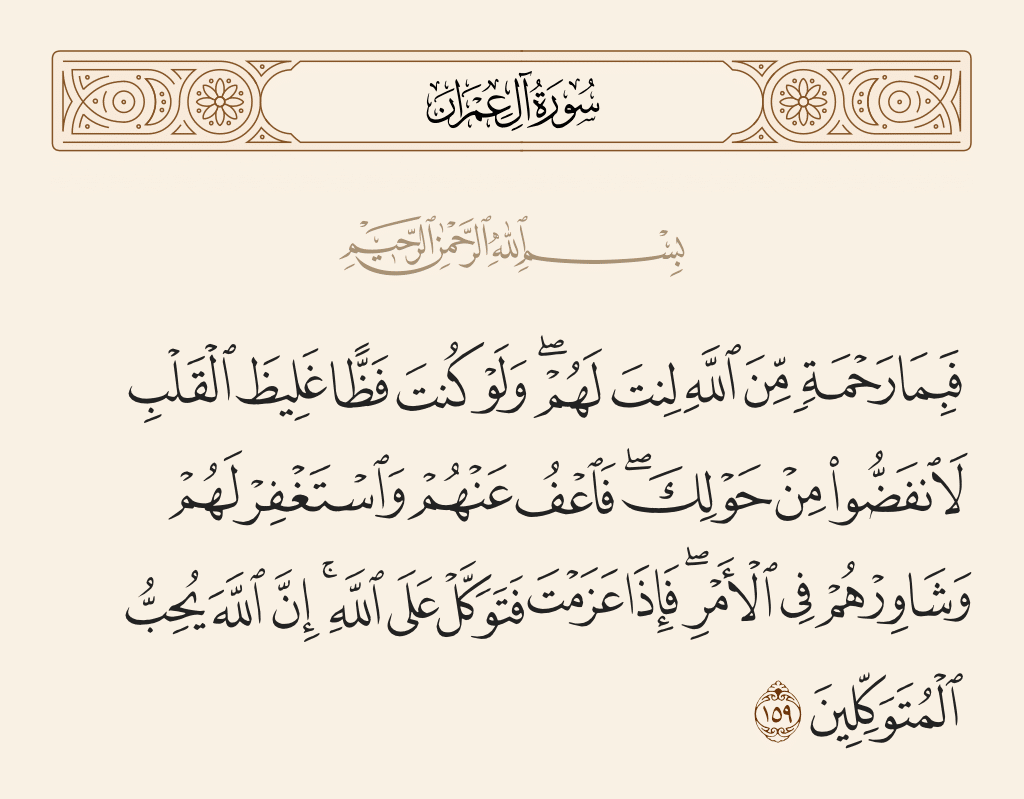 سُورَةُ آلِ عِمْرَانَ
بِسْمِ ٱللَّهِ ٱلرَّحْمَٰنِ ٱلرَّحِيمِ
فَبِمَا رَحْمَةٍ مِّنَ ٱللَّهِ لِنتَ لَهُمْ ۖ وَلَوْ كُنتَ فَظًّا غَلِيظَ ٱلْقَلْبِ
لَٱنفَضُّوا۟ مِنْ حَوْلِكَ ۖ فَٱعْفُ عَنْهُمْ وَٱسْتَغْفِرْ لَهُمْ
وَشَاوِرْهُمْ فِى ٱلْأَمْرِ ۖ فَإِذَا عَزَمْتَ فَتَوَكَّلْ عَلَى ٱللَّهِ ۚ إِنَّ ٱللَّهَ يُحِبُّ
ٱلْمُتَوَكِّلِينَ ١٥٩